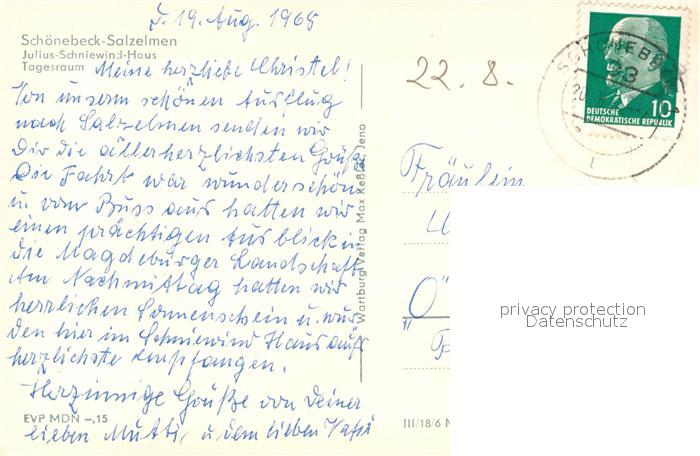 d. 19. Aug. 1968
Schönebeck-Salzelmen
Julius-Schniewind-Haus
Tagesraum
Meine herzliebe Christel!
Von unserm schönen Ausflug
nach Salzelmen senden wir
Dir die allerherzlichsten Grüße
Die Fahrt war wunderschön
u. vom Buss aus hatten wir
einen prächtigen Ausblick in
die Magdeburger Landschaft
Am Nachmittag hatten wir
herrlichen Sonnenschein u. wur
den hier im Schniewind Haus aufs
herzlichste empfangen.
Herzinnige Grüße von Deiner
lieben Mutti, u. dem lieben Vati
EVP MDN –,15
Wartburg Verlag Max Keßler, Jena
III/18/6
22. 8.
SCHÖNEBECK
10
DEUTSCHE
DEMOKRATISCHE REPUBLIK
Fräulein
privacy protection
Datenschutz